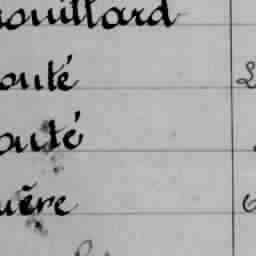 ouillard
outé
outé
uère